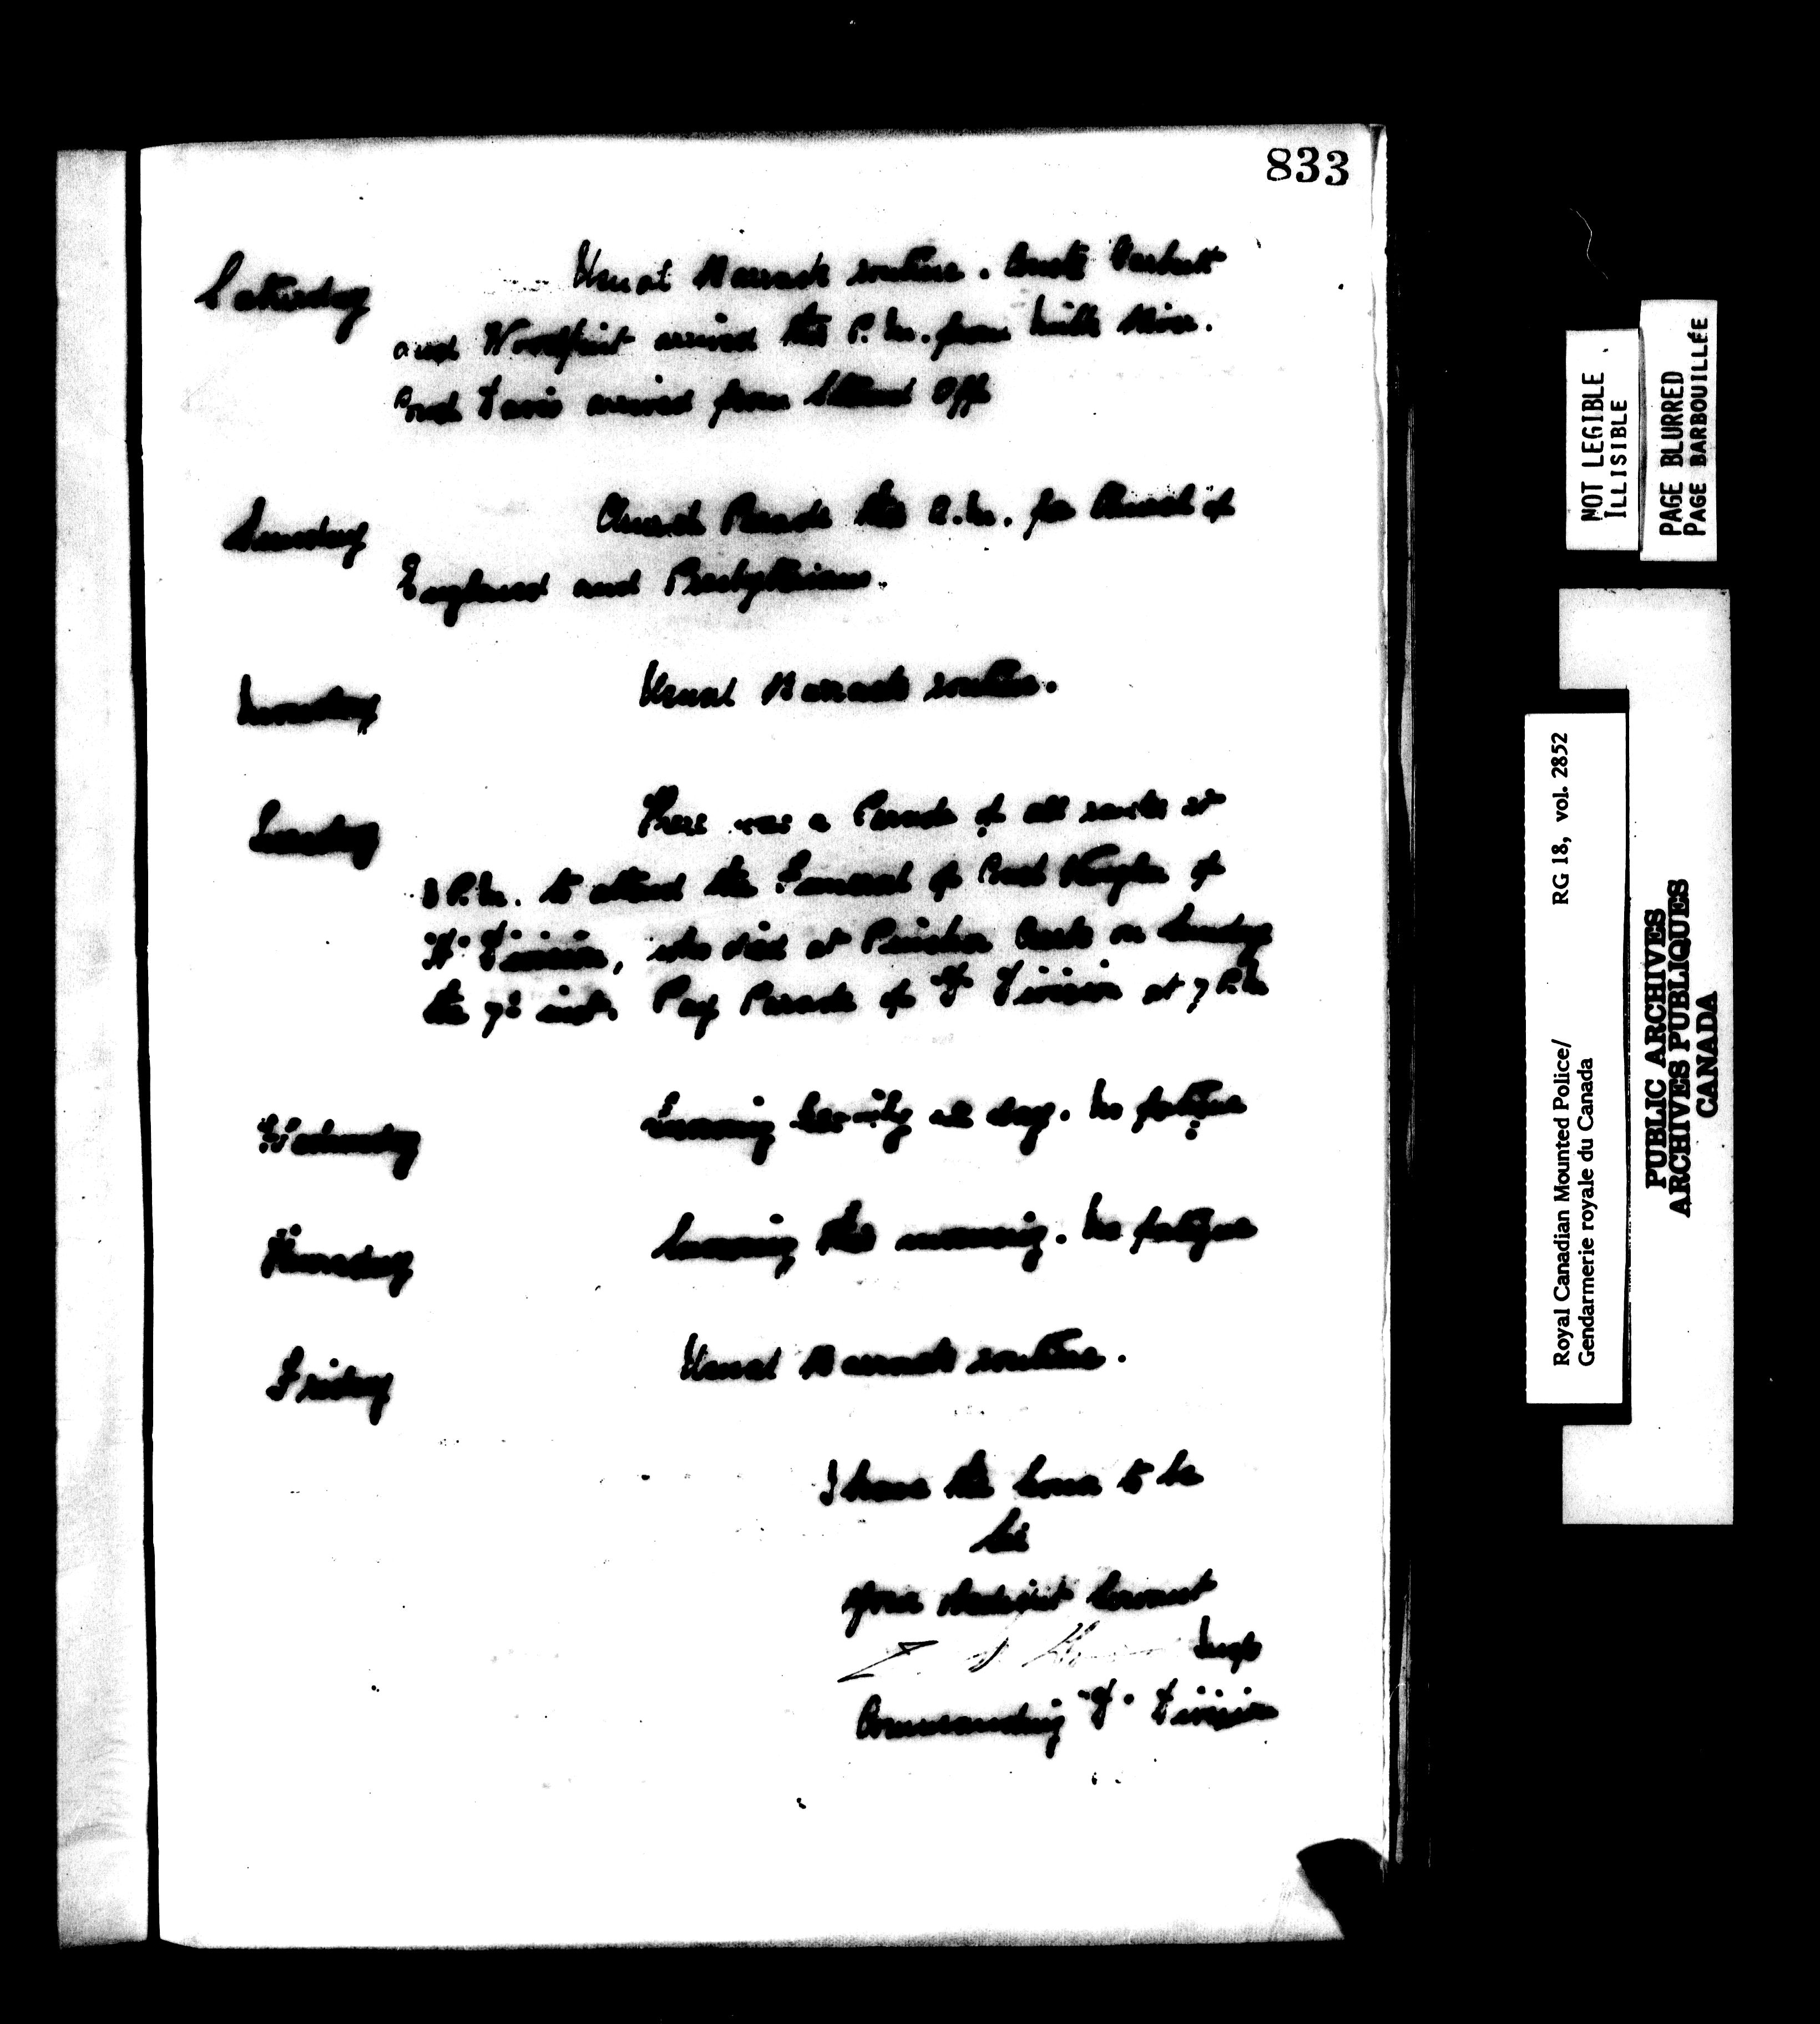 833
Saturday Usual Barrack routine. Consts
and arrived this P.M. from Milk River.
Const Davis arrived from Stand Off
Sunday Church Parade this A.M. for Church of
England and Presbyterians.
Monday Usual Barrack routine.
Tuesday There was a Parade of all ranks at
3 P.M. to attend the Funeral of Const of
Division, who died at Pincher Creek on Sunday
the 7th inst. Pay Parade of Division at 7 P.M
Wednesday Snowing heavily all day. No fatigue
Thursday Snowing this morning. No fatigue
Friday Usual Barrack routine.
I have the honor to be
Sir
Your obedient Servant
Insp
Commanding Division
NOT LEGIBLE
ILLISIBLE
PAGE BLURRED
PAGE BARBOUILLÉE
Royal Canadian Mounted Police/ RG 18, vol. 2852
Gendarmerie royale du Canada
PUBLIC ARCHIVES
ARCHIVES PUBLIQUES
CANADA